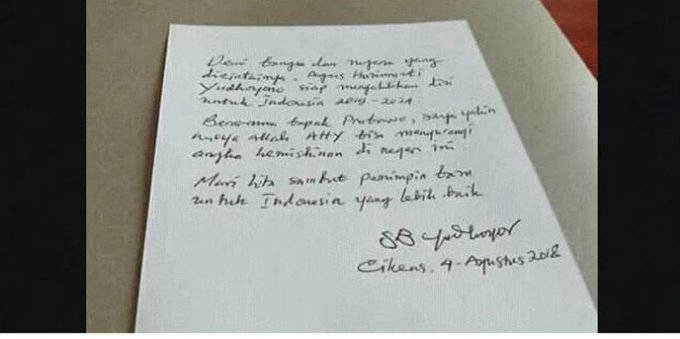 Demi bangsa dan negara yang
dicintainya, Agus Harimurti
Yudhoyono siap mengabdikan diri
untuk Indonesia 2019-2024
Bersama bapak Prabowo, saya yakin
insya Allah AHY bisa mengurangi
angka kemiskinan di negeri ini
Mari kita sambut pemimpin baru
untuk Indonesia yang lebih baik
SB Yudhoyono
Cikeas, 4-Agustus 2018